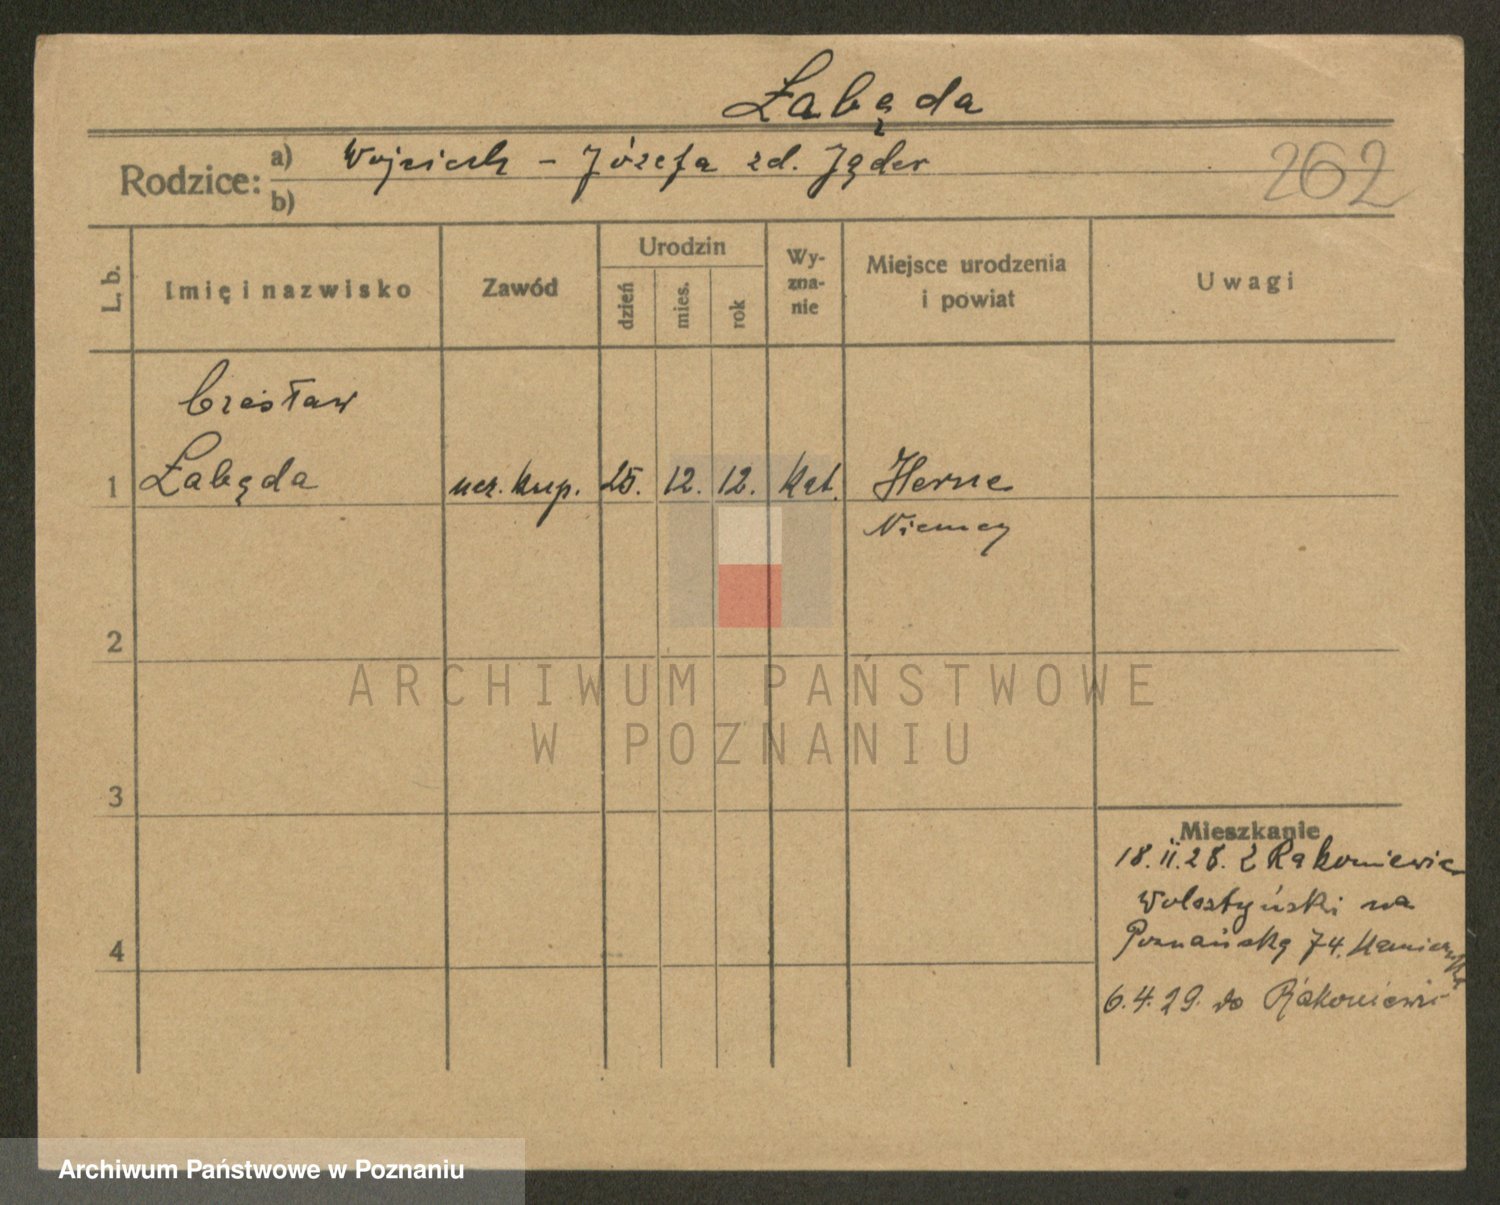 Łabęda
Rodzice: a) Wojciech – Józefa zd. Jąder
b)
262
L. b.
Imię i nazwisko
Zawód
Urodzin
dzień
mies.
rok
Wy-
zna-
nie
Miejsce urodzenia
i powiat
Uwagi
Czesław
1 Łabęda ucz. kup. 25. 12. 12. kat. Herne
Niemcy
2
3
4
Mieszkanie
18. II. 28. Z Rakoniewic
Wolsztyński na
Poznańską 74.
6.4.29. do Rakoniewic
ARCHIWUM PAŃSTWOWE
W POZNANIU
Archiwum Państwowe w Poznaniu